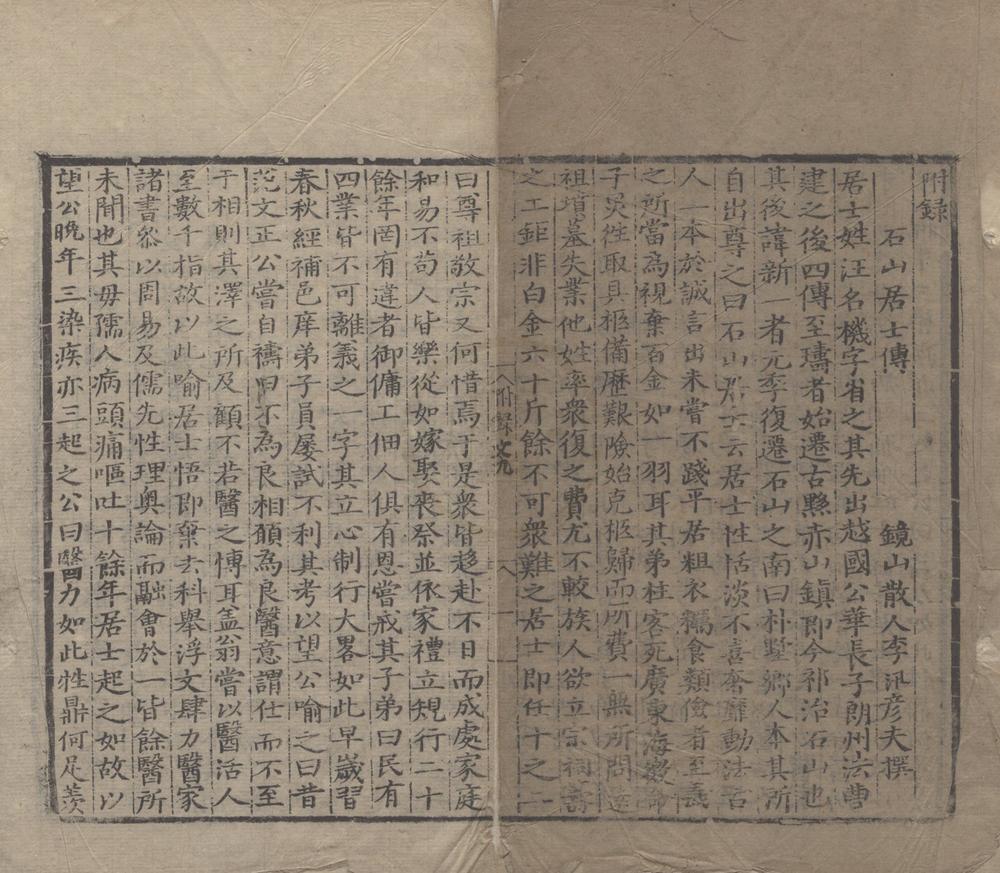 附錄
石山居士傳　鏡山散人李汛彥夫撰
居士姓汪名機字省之其先出越國公華長子朗州法曹
建之後四傳至璹者始遷古縣赤山鎮即今祁治石山也
其後諱新一者元季復遷石山之南曰朴墅鄉人本其所
自出尊之曰石山居士云居士性恬淡不喜奢靡動法古
人一本於誠言出未嘗不踐平居粗衣糲食類儉者至義
之所當為視棄百金如一羽耳其弟柱客死廣東海
子吳徃取具柩備歷艱險始克柩歸而所費一無所問
祖墳墓失業他姓率衆復之費尤不較族人欲立宗祠
之工鉅非白金六十斤餘不可衆難之居士即任十之二
附錄文九
八一
曰尊祖敬宗又何惜焉于是衆皆趍赴不日而成處家庭
和易不苟人皆樂從如嫁娶喪祭並依家禮立規行二十
餘年罔有違者御傭工佃人俱有恩嘗戒其子弟曰民有
四業皆不可離義之一字其立心制行大畧如此早歲習
春秋經補邑庠弟子員屢試不利其考以望公喻之曰昔
范文正公嘗自禱曰不為良相願為良醫意謂仕而不至
于相則其澤之所及顧不若醫之博耳盖翁嘗以醫活人
至數千指故以此喻居士悟即棄去科舉浮文肆力醫家
諸書叅以周易及儒先性理奧論而融會於一皆餘醫所
未聞也其母孺人病頭痛嘔吐十餘年居士起之如故以
望公晩年三染疾亦三起之公曰醫力如此牲鼎何足羨